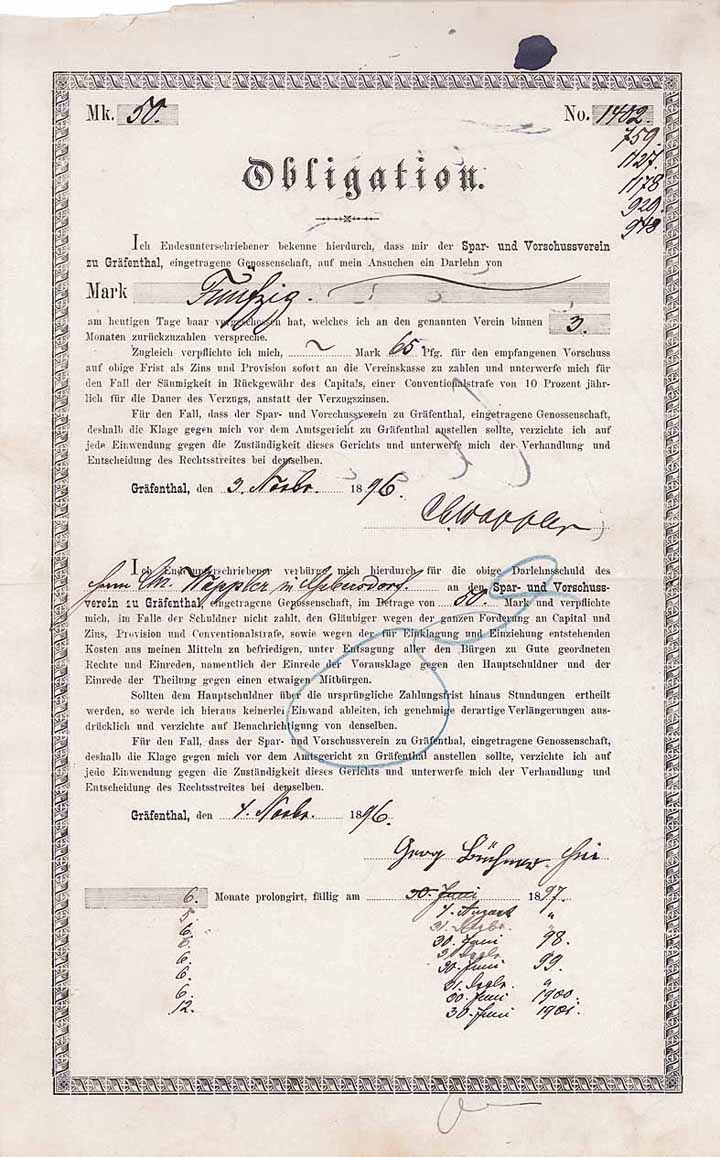 Mk. 50. No. 1402.
759.
1127.
1178
929.
948
Obligation.
Ich Endesunterschriebener bekenne hierdurch, dass mir der Spar- und Vorschussverein
zu Gräfenthal, eingetragene Genossenschaft, auf mein Ansuchen ein Darlehn von
Mark Fünfzig.
am heutigen Tage baar vorgeschossen hat, welches ich an den genannten Verein binnen 3.
Monaten zurückzuzahlen verspreche.
Zugleich verpflichte ich mich, Mark 65 Pfg. für den empfangenen Vorschuss
auf obige Frist als Zins und Provision sofort an die Vereinskasse zu zahlen und unterwerfe mich für
den Fall der Säumigkeit in Rückgewähr des Capitals, einer Conventionalstrafe von 10 Prozent jähr-
lich für die Dauer des Verzugs, anstatt der Verzugszinsen.
Für den Fall, dass der Spar- und Vorschussverein zu Gräfenthal, eingetragene Genossenschaft,
deshalb die Klage gegen mich vor dem Amtsgericht zu Gräfenthal anstellen sollte, verzichte ich auf
jede Einwendung gegen die Zuständigkeit dieses Gerichts und unterwerfe mich der Verhandlung und
Entscheidung des Rechtsstreites bei demselben.
Gräfenthal, den 3. Novbr. 1896.
Ch Wappler
Ich Endesunterschriebener verbürge mich hierdurch für die obige Darlehnsschuld des
Herrn Chr. Wappler in an den Spar- und Vorschuss-
verein zu Gräfenthal, eingetragene Genossenschaft, im Betrage von 50. Mark und verpflichte
mich, im Falle der Schuldner nicht zahlt, den Gläubiger wegen der ganzen Forderung an Capital und
Zins, Provision und Conventionalstrafe, sowie wegen der für Einklagung und Einziehung entstehenden
Kosten aus meinen Mitteln zu befriedigen, unter Entsagung aller den Bürgen zu Gute geordneten
Rechte und Einreden, namentlich der Einrede der Vorausklage gegen den Hauptschuldner und der
Einrede der Theilung gegen einen etwaigen Mitbürgen.
Sollten dem Hauptschuldner über die ursprüngliche Zahlungsfrist hinaus Stundungen ertheilt
werden, so werde ich hieraus keinerlei Einwand ableiten, ich genehmige derartige Verlängerungen aus-
drücklich und verzichte auf Benachrichtigung von denselben.
Für den Fall, dass der Spar- und Vorschussverein zu Gräfenthal, eingetragene Genossenschaft,
deshalb die Klage gegen mich vor dem Amtsgericht zu Gräfenthal anstellen sollte, verzichte ich auf
jede Einwendung gegen die Zuständigkeit dieses Gerichts und unterwerfe mich der Verhandlung und
Entscheidung des Rechtsstreites bei demselben.
Gräfenthal, den 4. Novbr. 1896.
Georg Büchner
6. Monate prolongirt, fällig am 30. Juni 1897.
5. 4. August "
6. 31. Dezbr. "
6. 30. Juni 98.
6. 31. Dezbr.
6. 30. Juni 99.
31. Dezbr. "
6. 30. Juni 1900.
12. 30. Juni 1901.